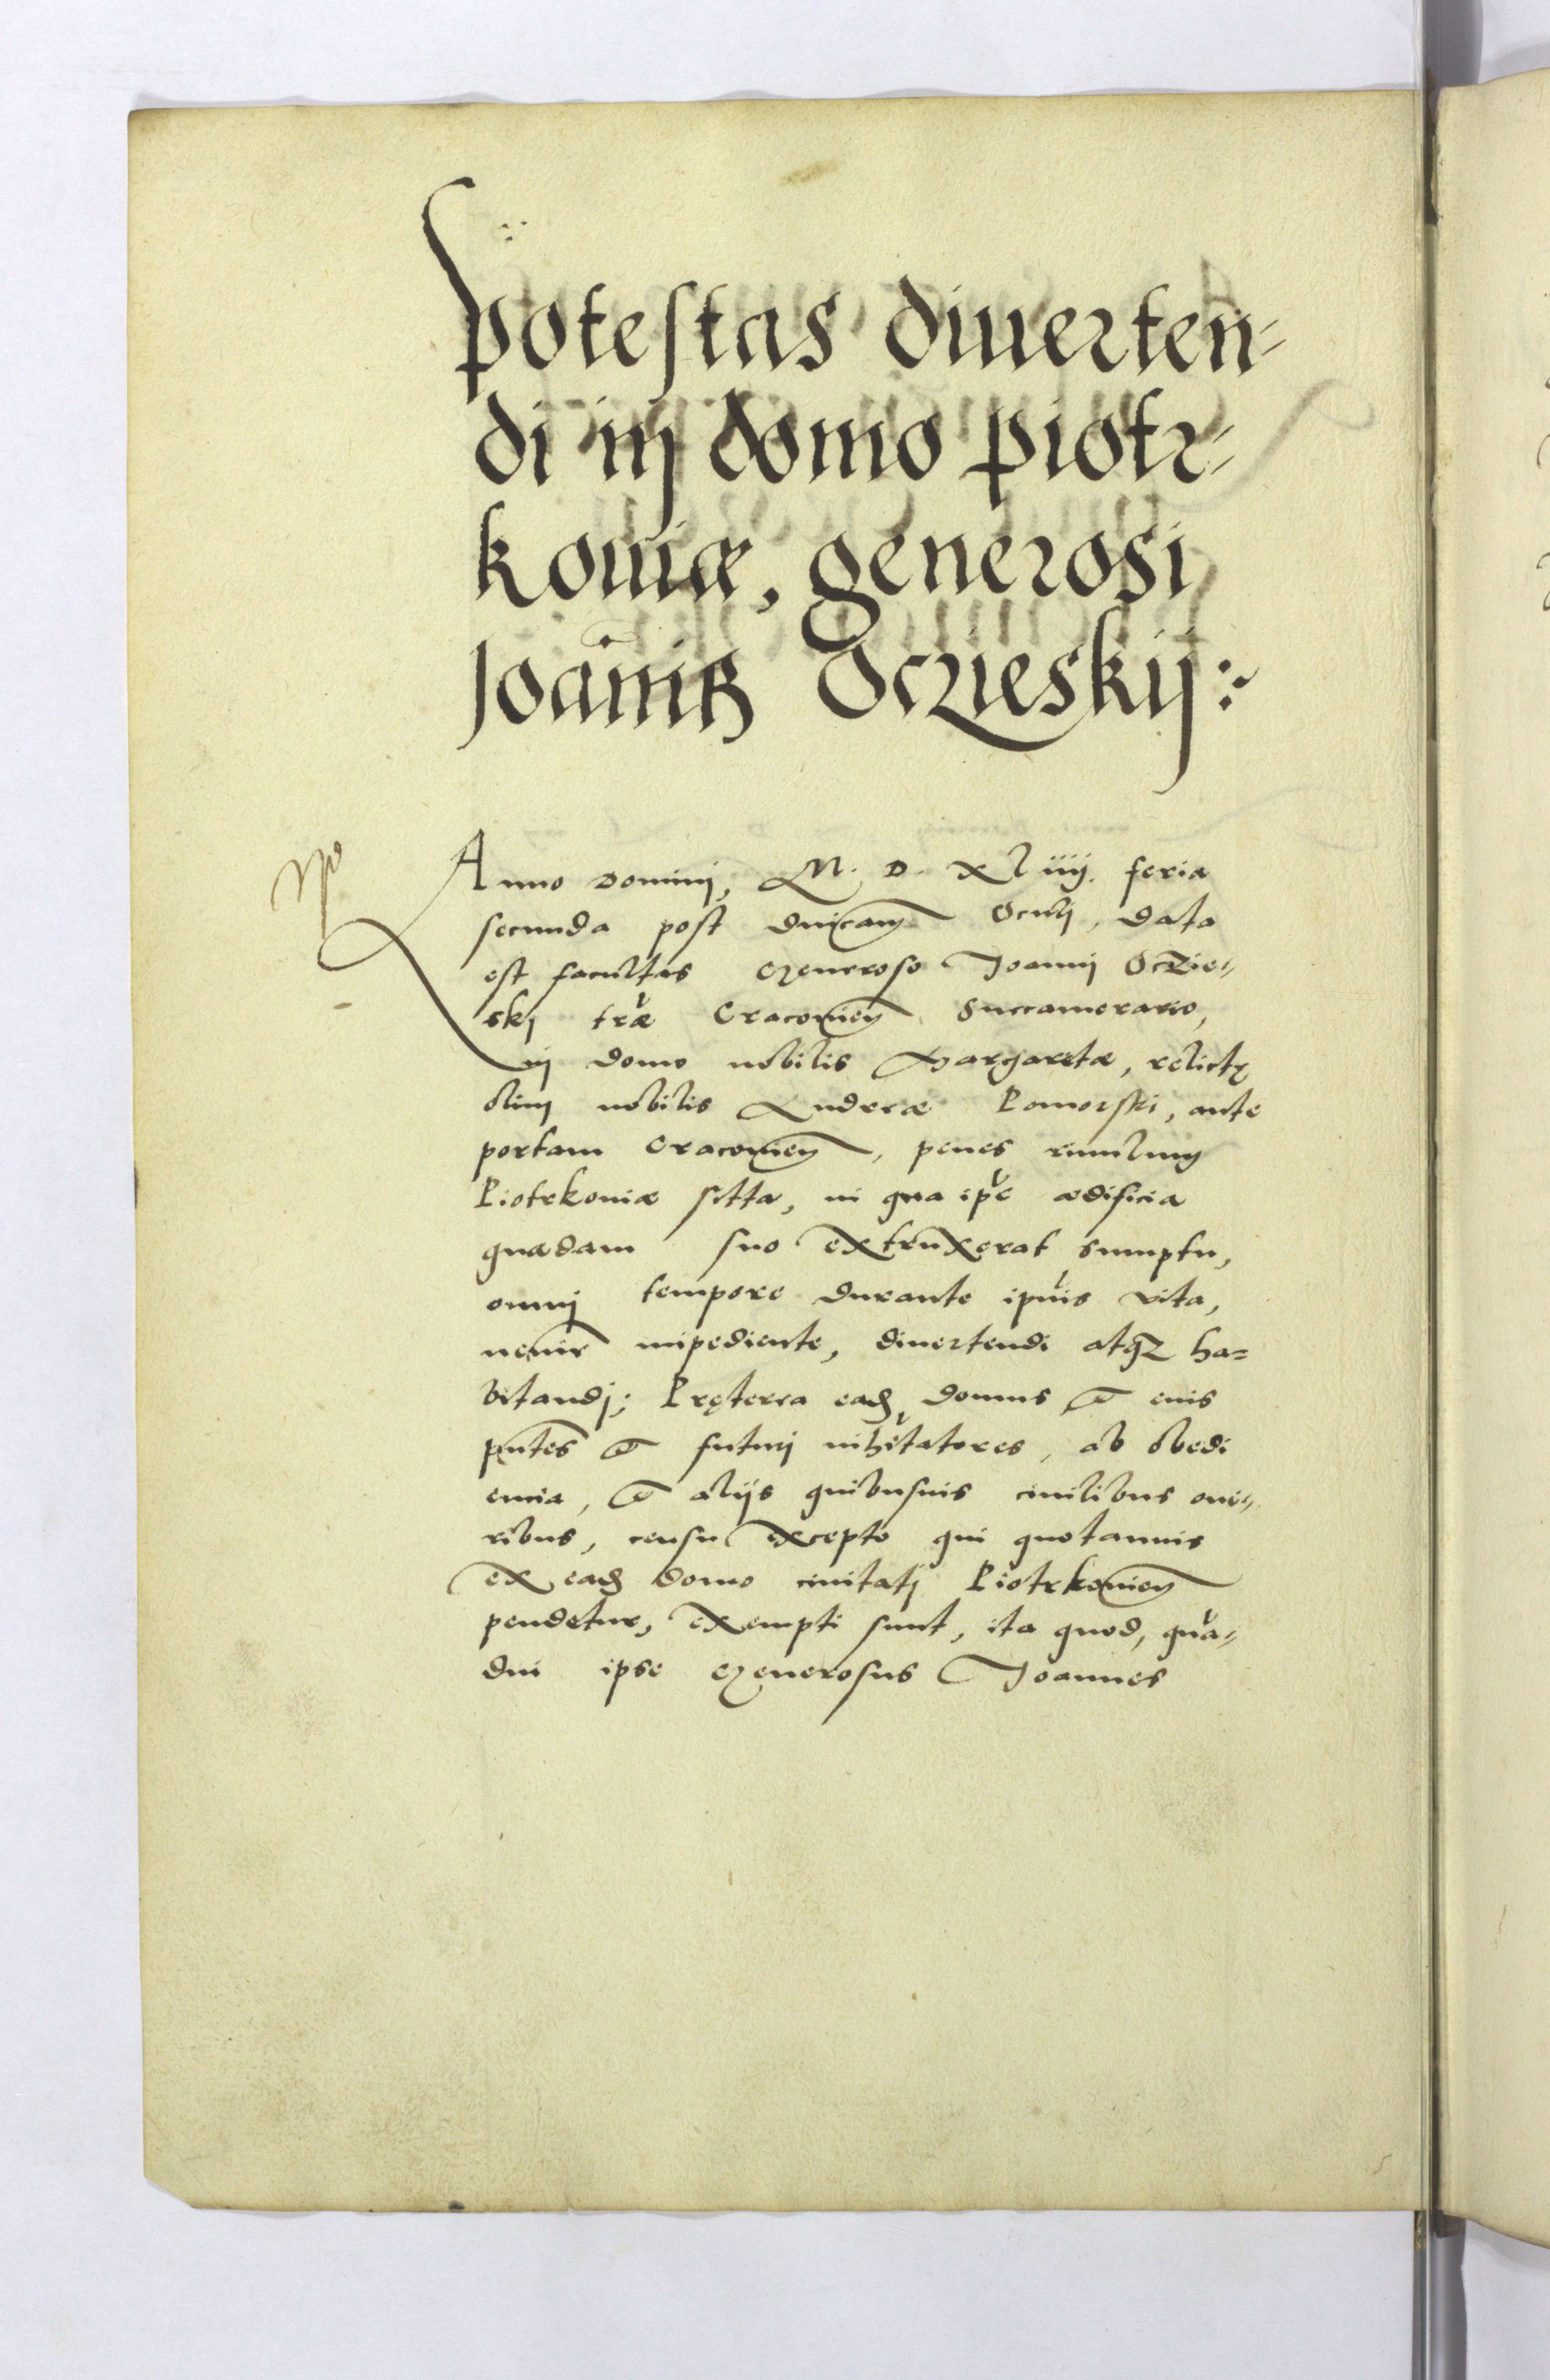 potestas diuerten-
di in domo piotr-
kouiæ, generosi
Joan̄nis Oczieskij:
Anno Domini, M. D. XLiiij. feria
secunda post dnicam Oculj, data
est facultas Generoso Joannj Oczie-
skj træ Cracouien Succamerario,
in domo nobilis Margaretæ, relictę
olim nobilis Andreæ Pomorski, ante
portam Cracouien, penes riuulum
Piotrkouiæ sitta, in qua ipe ædificia
quædam suo extruxerat sumptu,
omnj tempore durante ipius vita,
nemine impediente, diuertendi atqz ha=
bitandj; Pręterea ead domus et eius
pntes et futurj inhitatores, ab obedi
encia, et alijs quibusuis ciuilibus one-
ribus, censu excepto qui quotannis
ex ead domo ciuitatj Piotrkouien
pendetur, exempti sunt, ita quod, qua-
diu ipse Generosus Joannes